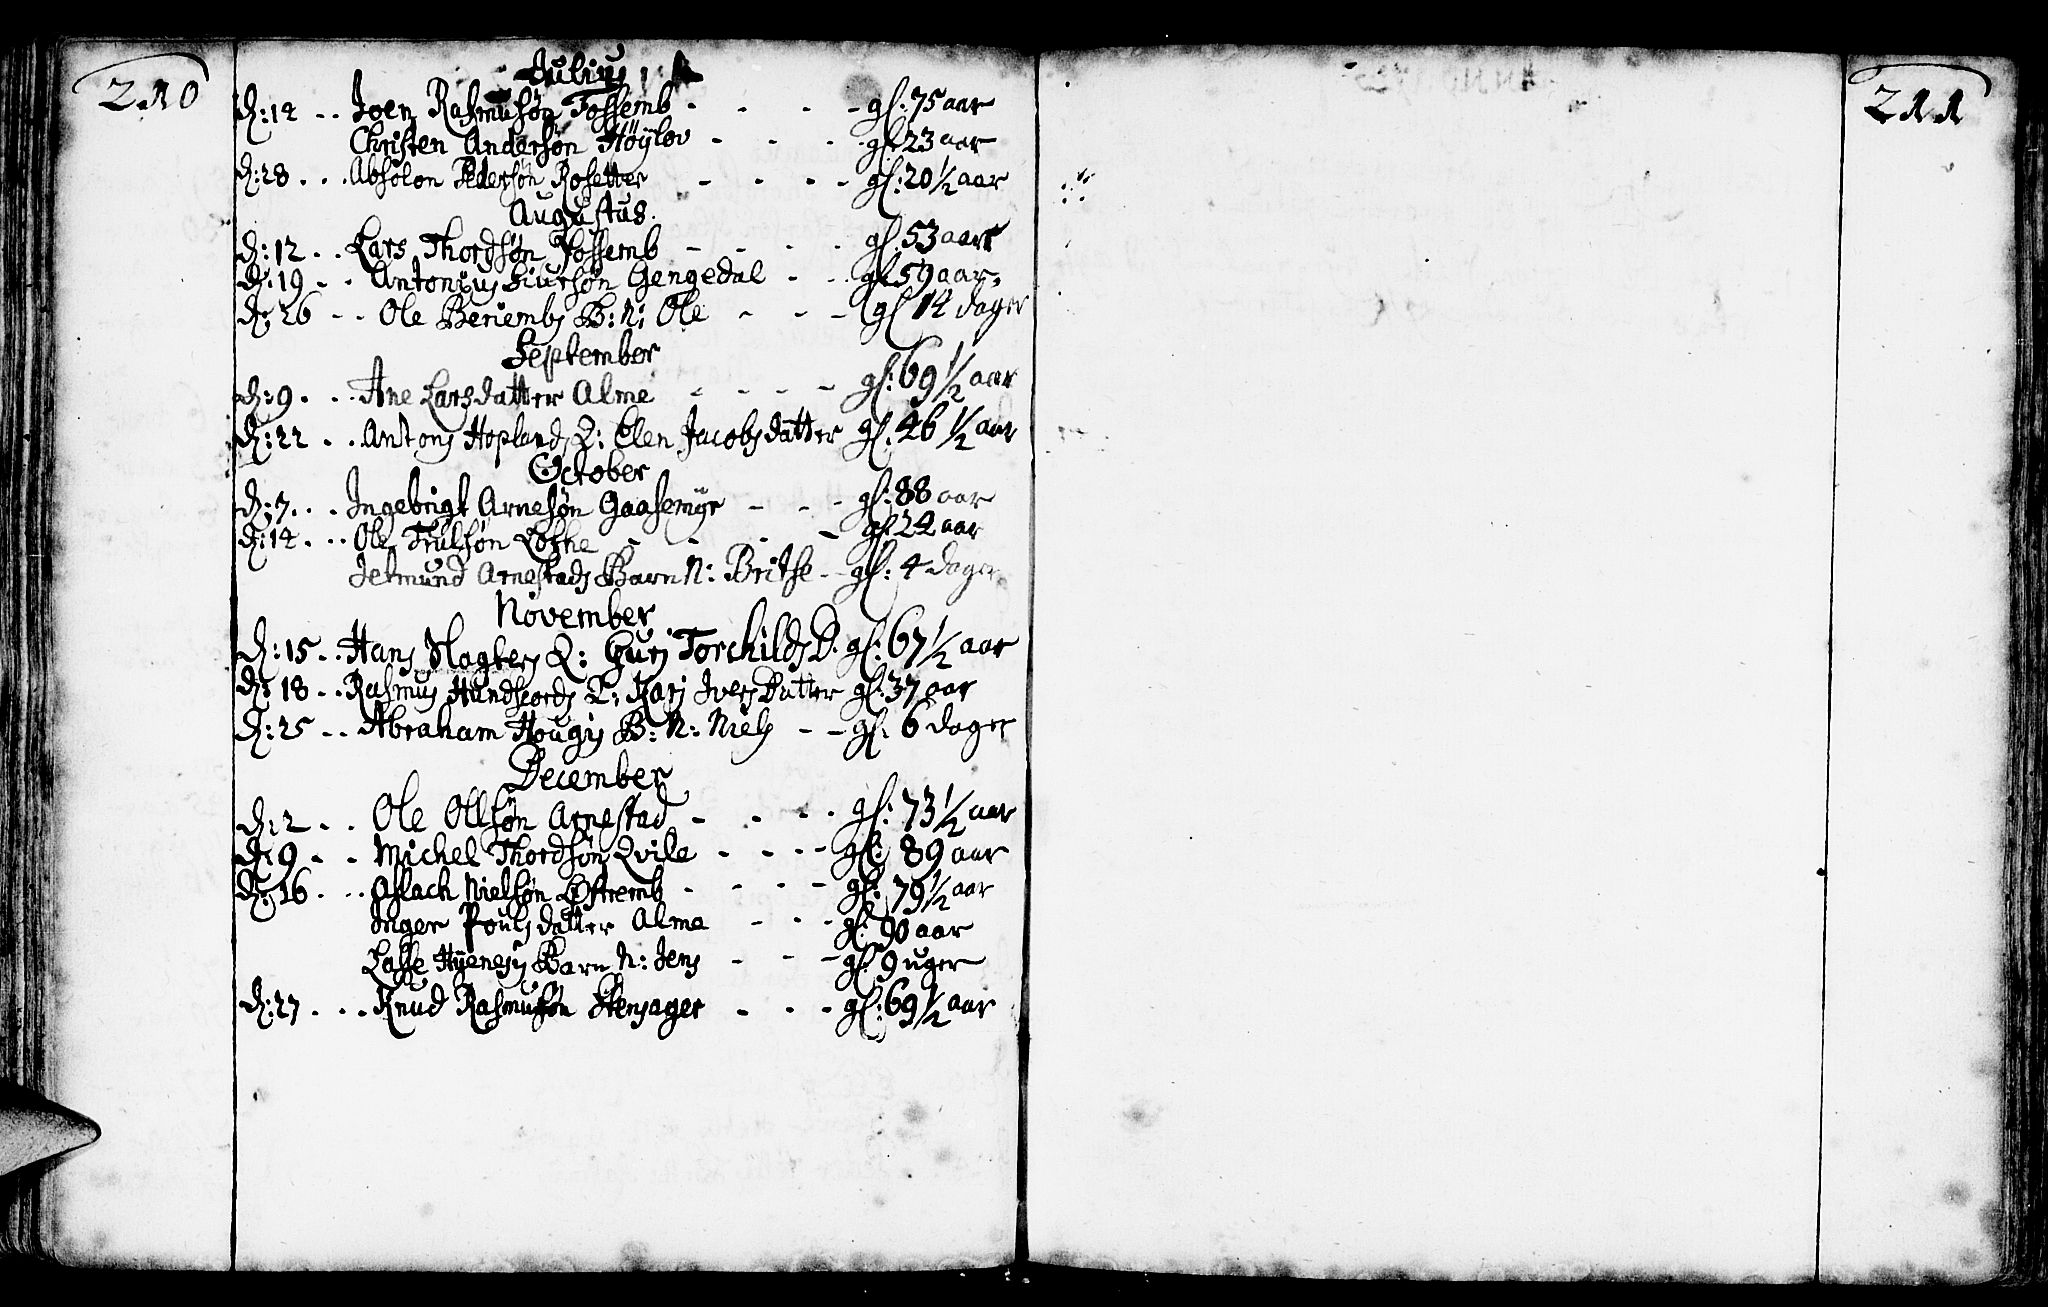 210
Julius
D: 14 .. Joen Rasmusøn Fossemb - - - - gl: 75 aar
Christen Andersøn Høÿlov - - - gl: 23 aar
D: 28 ... Absolon Pedersøn Rosetter - - - - gl: 20 1/2 aar
Augustus.
D: 12 .. Lars Thordsøn Fossemb - - - - gl: 53 aar
D: 19 - - Antonius Siursøn Gengedal - - gl: 59 aar
D: 26 - - Ole Beriembs B: N: Ole - - - gl 14 dager
September
D: 9 . . Ane Larsdatter Alme - - - - gl: 69 1/2 aar
D: 22 .. Antons Hoplands Q: Elen Jacobsdatter gl: 46 1/2 aar
October
D: 7 ... Ingebrigt Arnesøn Gaasemÿr - - - gl: 88 aar
D: 14 ... Ole Trulsøn - - - - gl: 24 aar
Jetmund Arnestads Barn N: Brithe - gl: 4 dager
November
D: 15 .. Hans Q: Guri Torchilds D. gl: 67 1/2 aar
D: 18 .. Rasmus Hundseords Q: Kari Ivers Datter gl: 37 aar
D: 25 .. Abraham Hougis B: N: Niels - - gl: 6 dager
December
D: 2 .. Ole Ollsøn Arnestad - - - . gl: 73 1/2 aar
D: 9 - - Michel Thordsøn Qvile - - - - gl: 89 aar
D: 16 ... Aslach Nielsøn Østremb - - - - gl: 79 1/2 aar
Inger Poulsdatter Alme - - - gl: 90 aar
Lasse Hÿenes Barn N: Jens - - - gl: 9 uger
D: 27 ... Knud Rasmusøn Stensager - - - gl: 69 1/2 aar
211